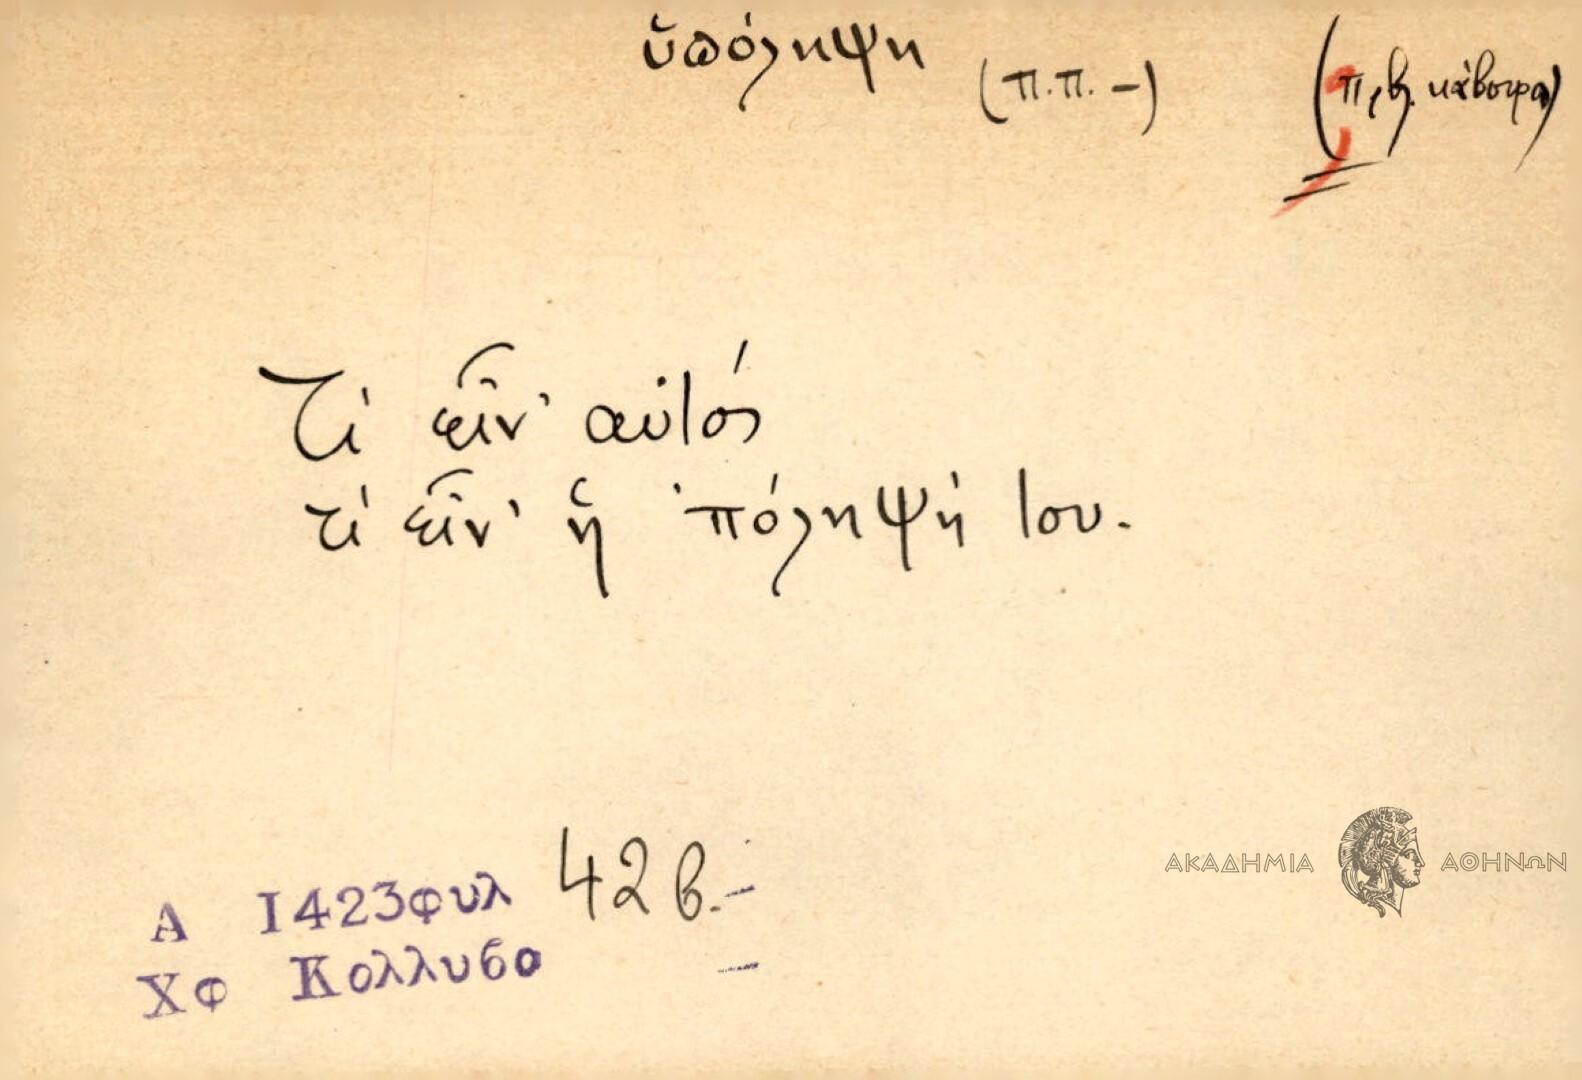 ὑπόληψη (π.π. -) (π, β. κάβουρα)
Τί εἶν' αὐτός
τί εἶν' ἡ 'πόληψή του.
Α 1423φυλ 42 β.-
Χφ Κολλυβα -
ΑΚΑΔΗΜΙΑ ΑΘΗΝΩΝ